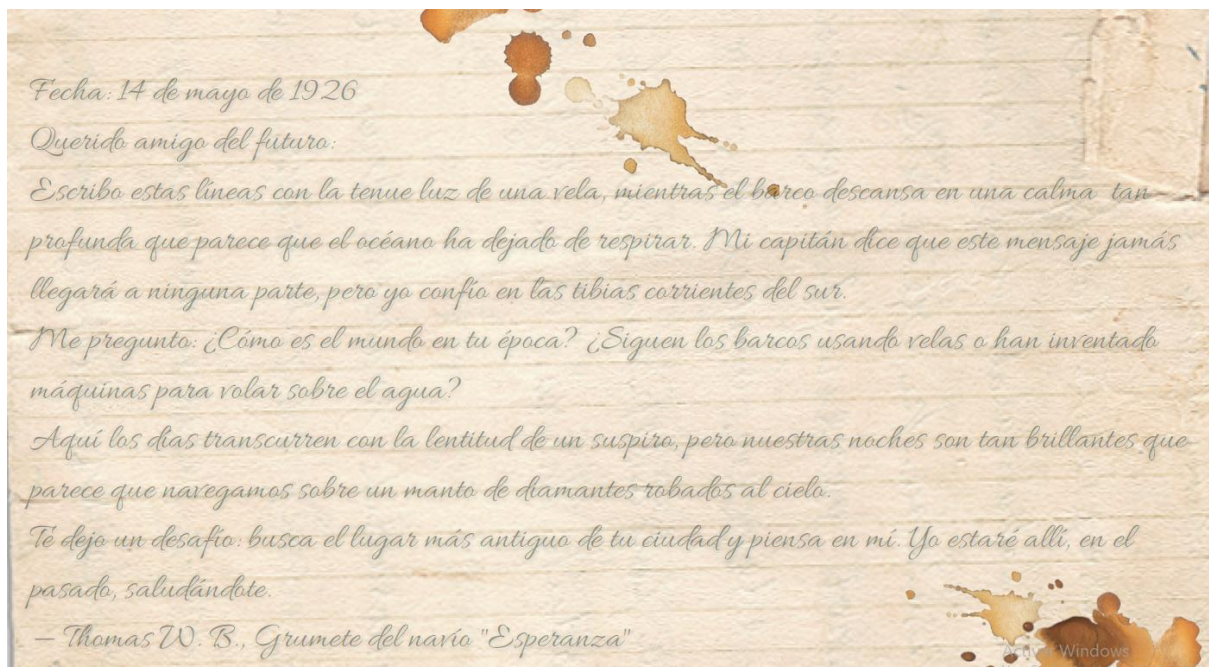 Fecha: 14 de mayo de 1926
Querido amigo del futuro:
Escribo estas líneas con la tenue luz de una vela, mientras el barco descansa en una calma tan
profunda que parece que el océano ha dejado de respirar. Mi capitán dice que este mensaje jamás
llegará a ninguna parte, pero yo confío en las tibias corrientes del sur.
Me pregunto: ¿Cómo es el mundo en tu época? ¿Siguen los barcos usando velas o han inventado
máquinas para volar sobre el agua?
Aquí los días transcurren con la lentitud de un suspiro, pero nuestras noches son tan brillantes que
parece que navegamos sobre un manto de diamantes robados al cielo.
Te dejo un desafío: busca el lugar más antiguo de tu ciudad y piensa en mí. Yo estaré allí, en el
pasado, saludándote.
— Thomas W. B., Grumete del navío "Esperanza"
Activar Windows